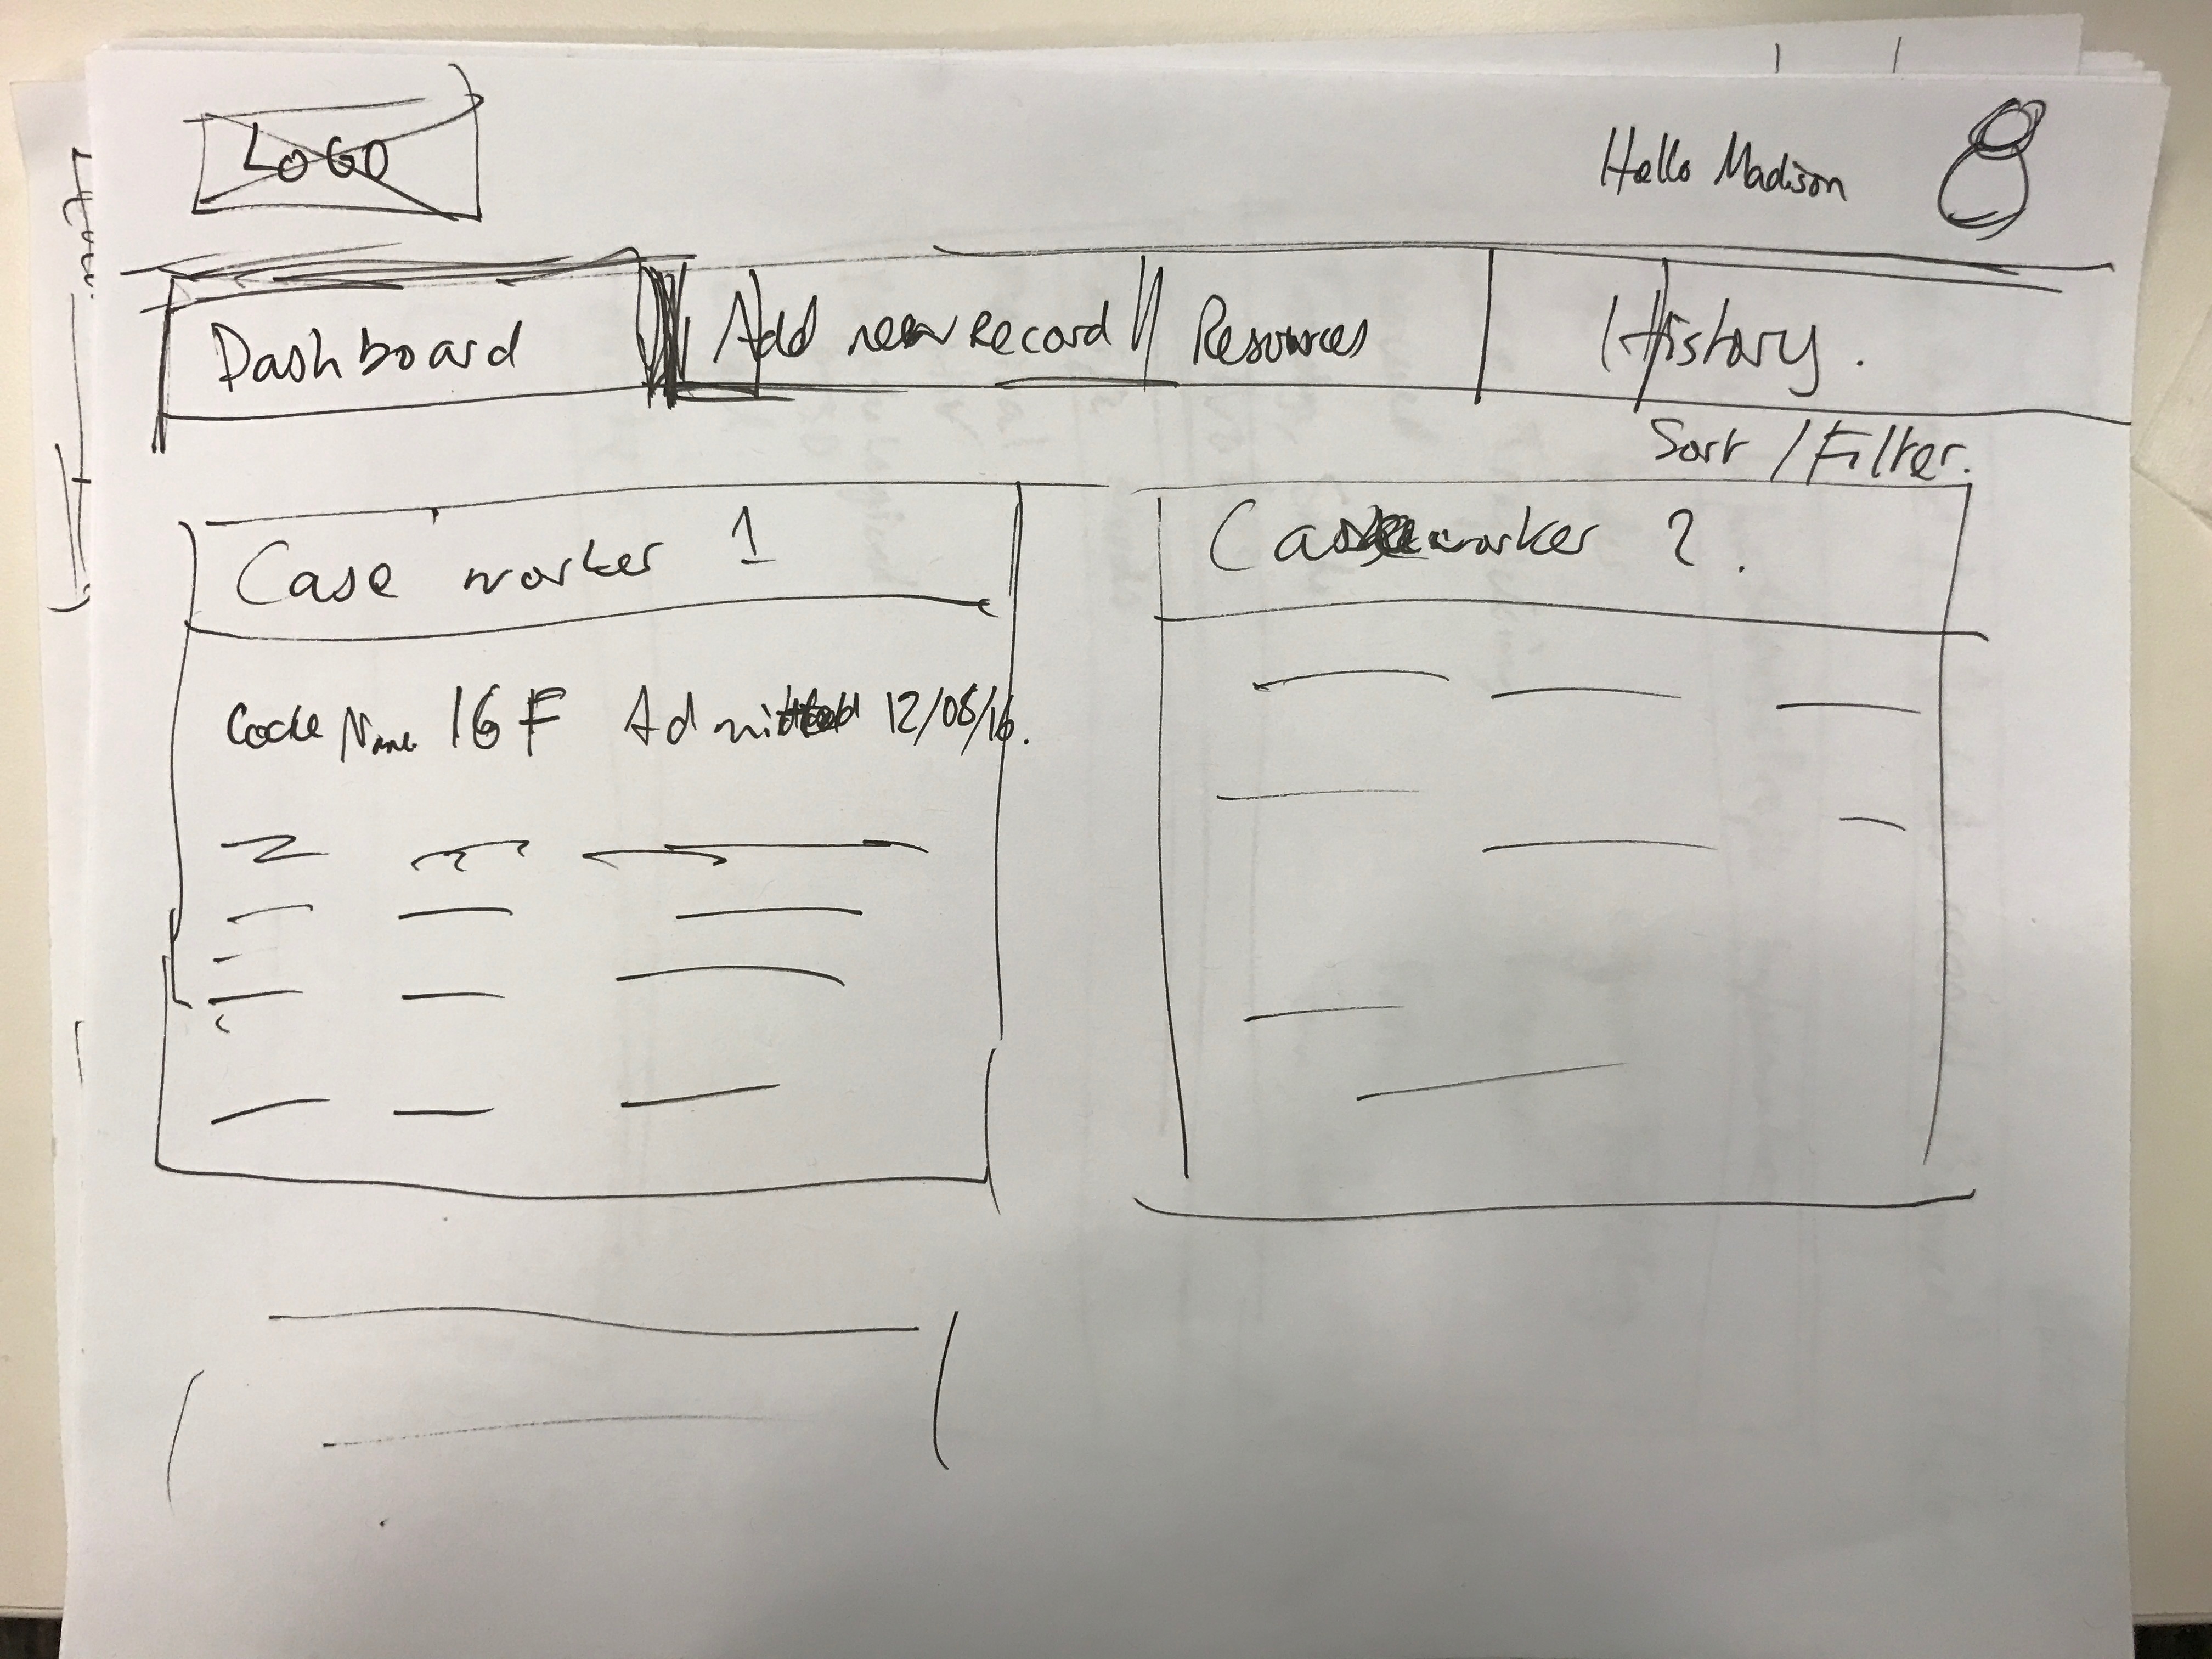 LOGO
Hello Madison
Dashboard
Add new record
Resources
History.
Sort / Filter.
Case worker 1
Case worker 2.
Code Name 16 F Admitted 12/08/16.